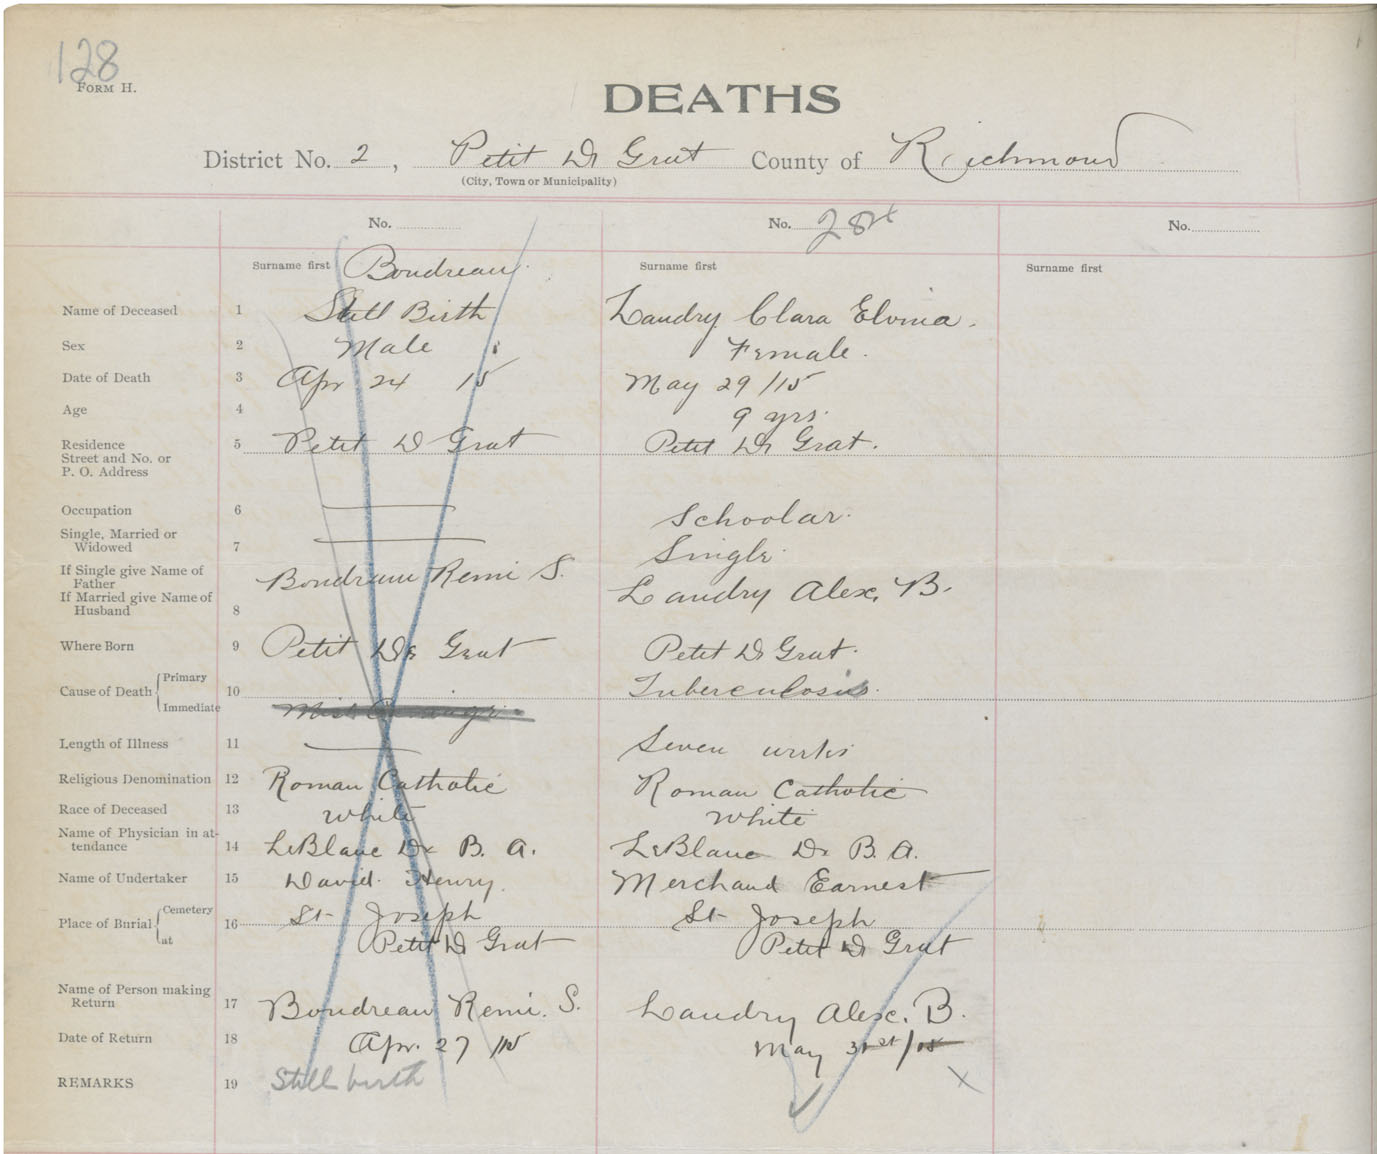 128
FORM H.
DEATHS
District No. 2, Petit De Grat County of Richmond
(City, Town or Municipality)
No. No. No.
Surname first Boudreau Surname first Surname first
Name of Deceased 1 Still Birth Landry Clara Elvina.
Sex 2 Male Female.
Date of Death 3 Apr 24 15 May 29/15
Age 4 9 yrs.
Residence 5 Petit D Grat Petit De Grat.
Street and No. or
P. O. Address
Occupation 6 Schoolar.
Single, Married or
Widowed 7 Single.
If Single give Name of
Father Boudreau Remi S. Landry Alex. B.
If Married give Name of
Husband 8
Where Born 9 Petit De Grat Petit De Grat.
Cause of Death Primary 10 Tuberculosis.
Immediate
Length of Illness 11 Seven weeks
Religious Denomination 12 Roman Catholic Roman Catholic
Race of Deceased 13 White White
Name of Physician in at-
tendance 14 LeBlanc Dr B. A. LeBlanc Dr B. A.
Name of Undertaker 15 David Henry. Merchand Earnest
Place of Burial Cemetery 16 St Joseph St Joseph
at Petit De Grat Petit De Grat
Name of Person making
Return 17 Boudreau Remi. S. Landry Alex. B.
Date of Return 18 Apr. 27/15 May 31st/15
REMARKS 19 Still birth